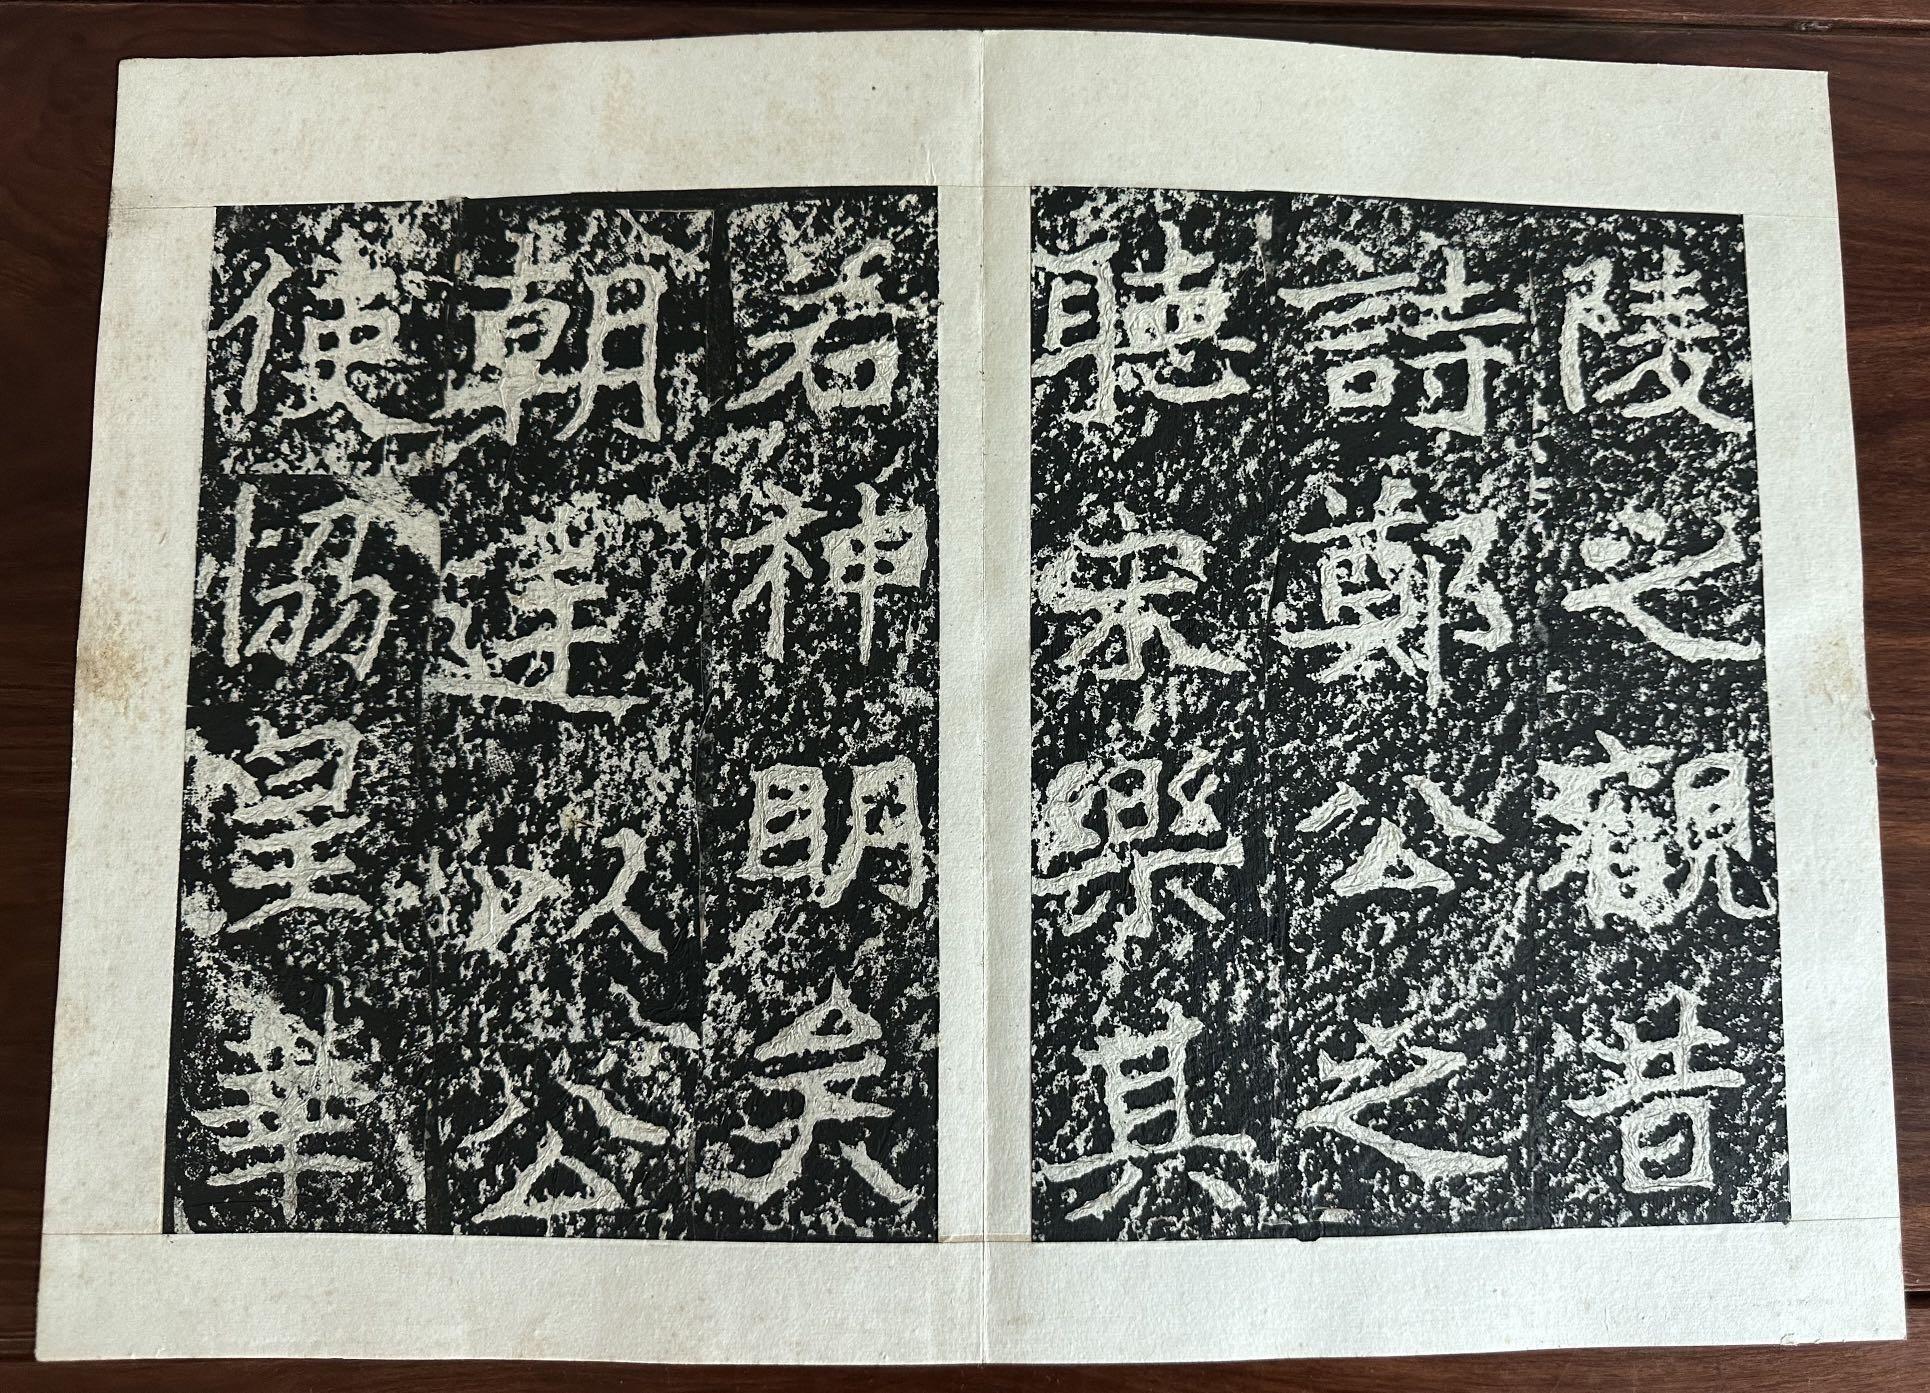 陵之觀昔
詩鄭公之
聽宋樂其
若神明矣
朝廷以公
使協皇華